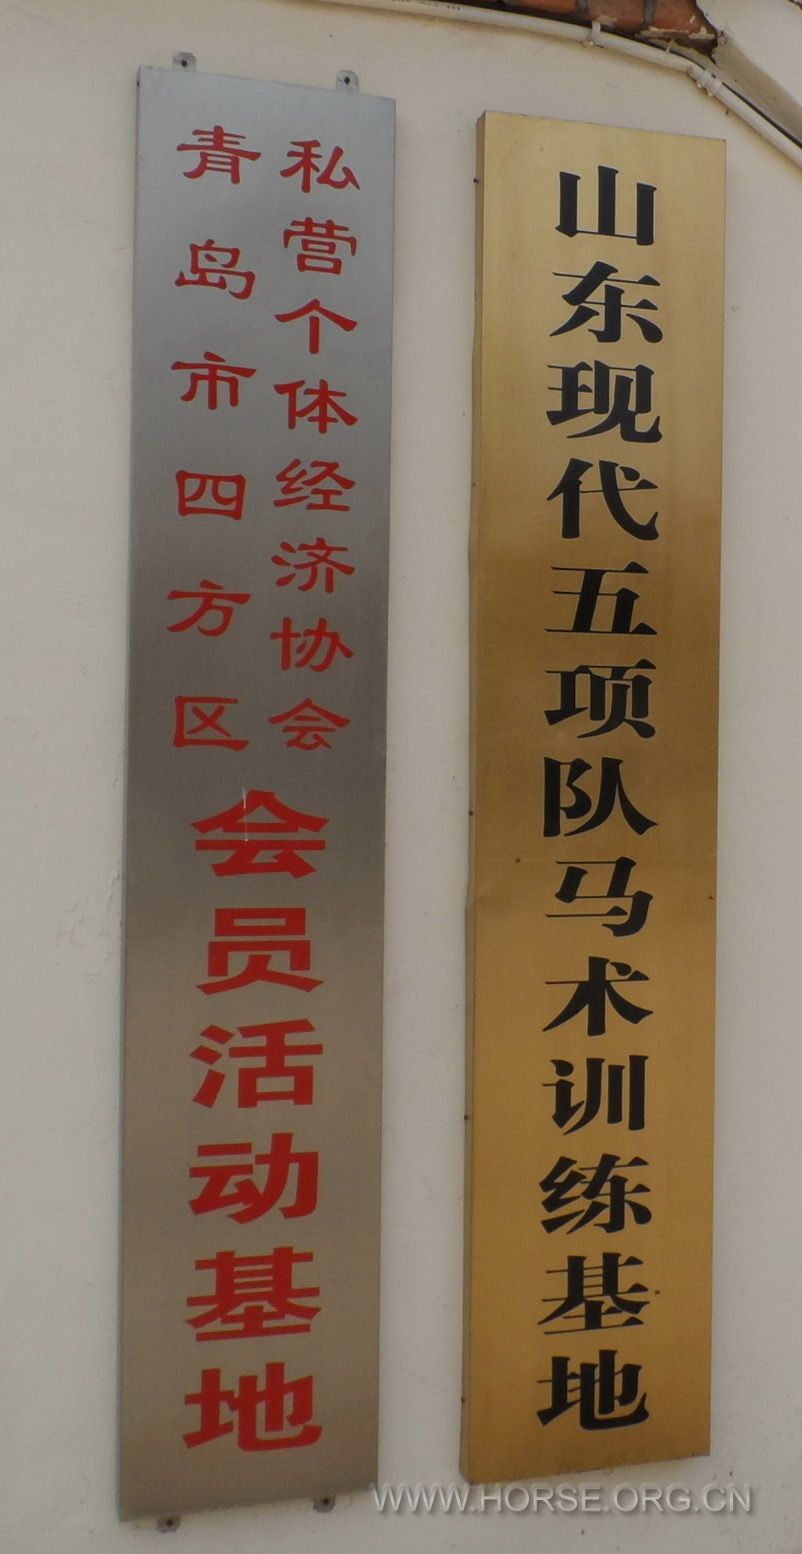 青岛市四方区
私营个体经济协会
会员活动基地
山东现代五项队马术训练基地
WWW.HORSE.ORG.CN